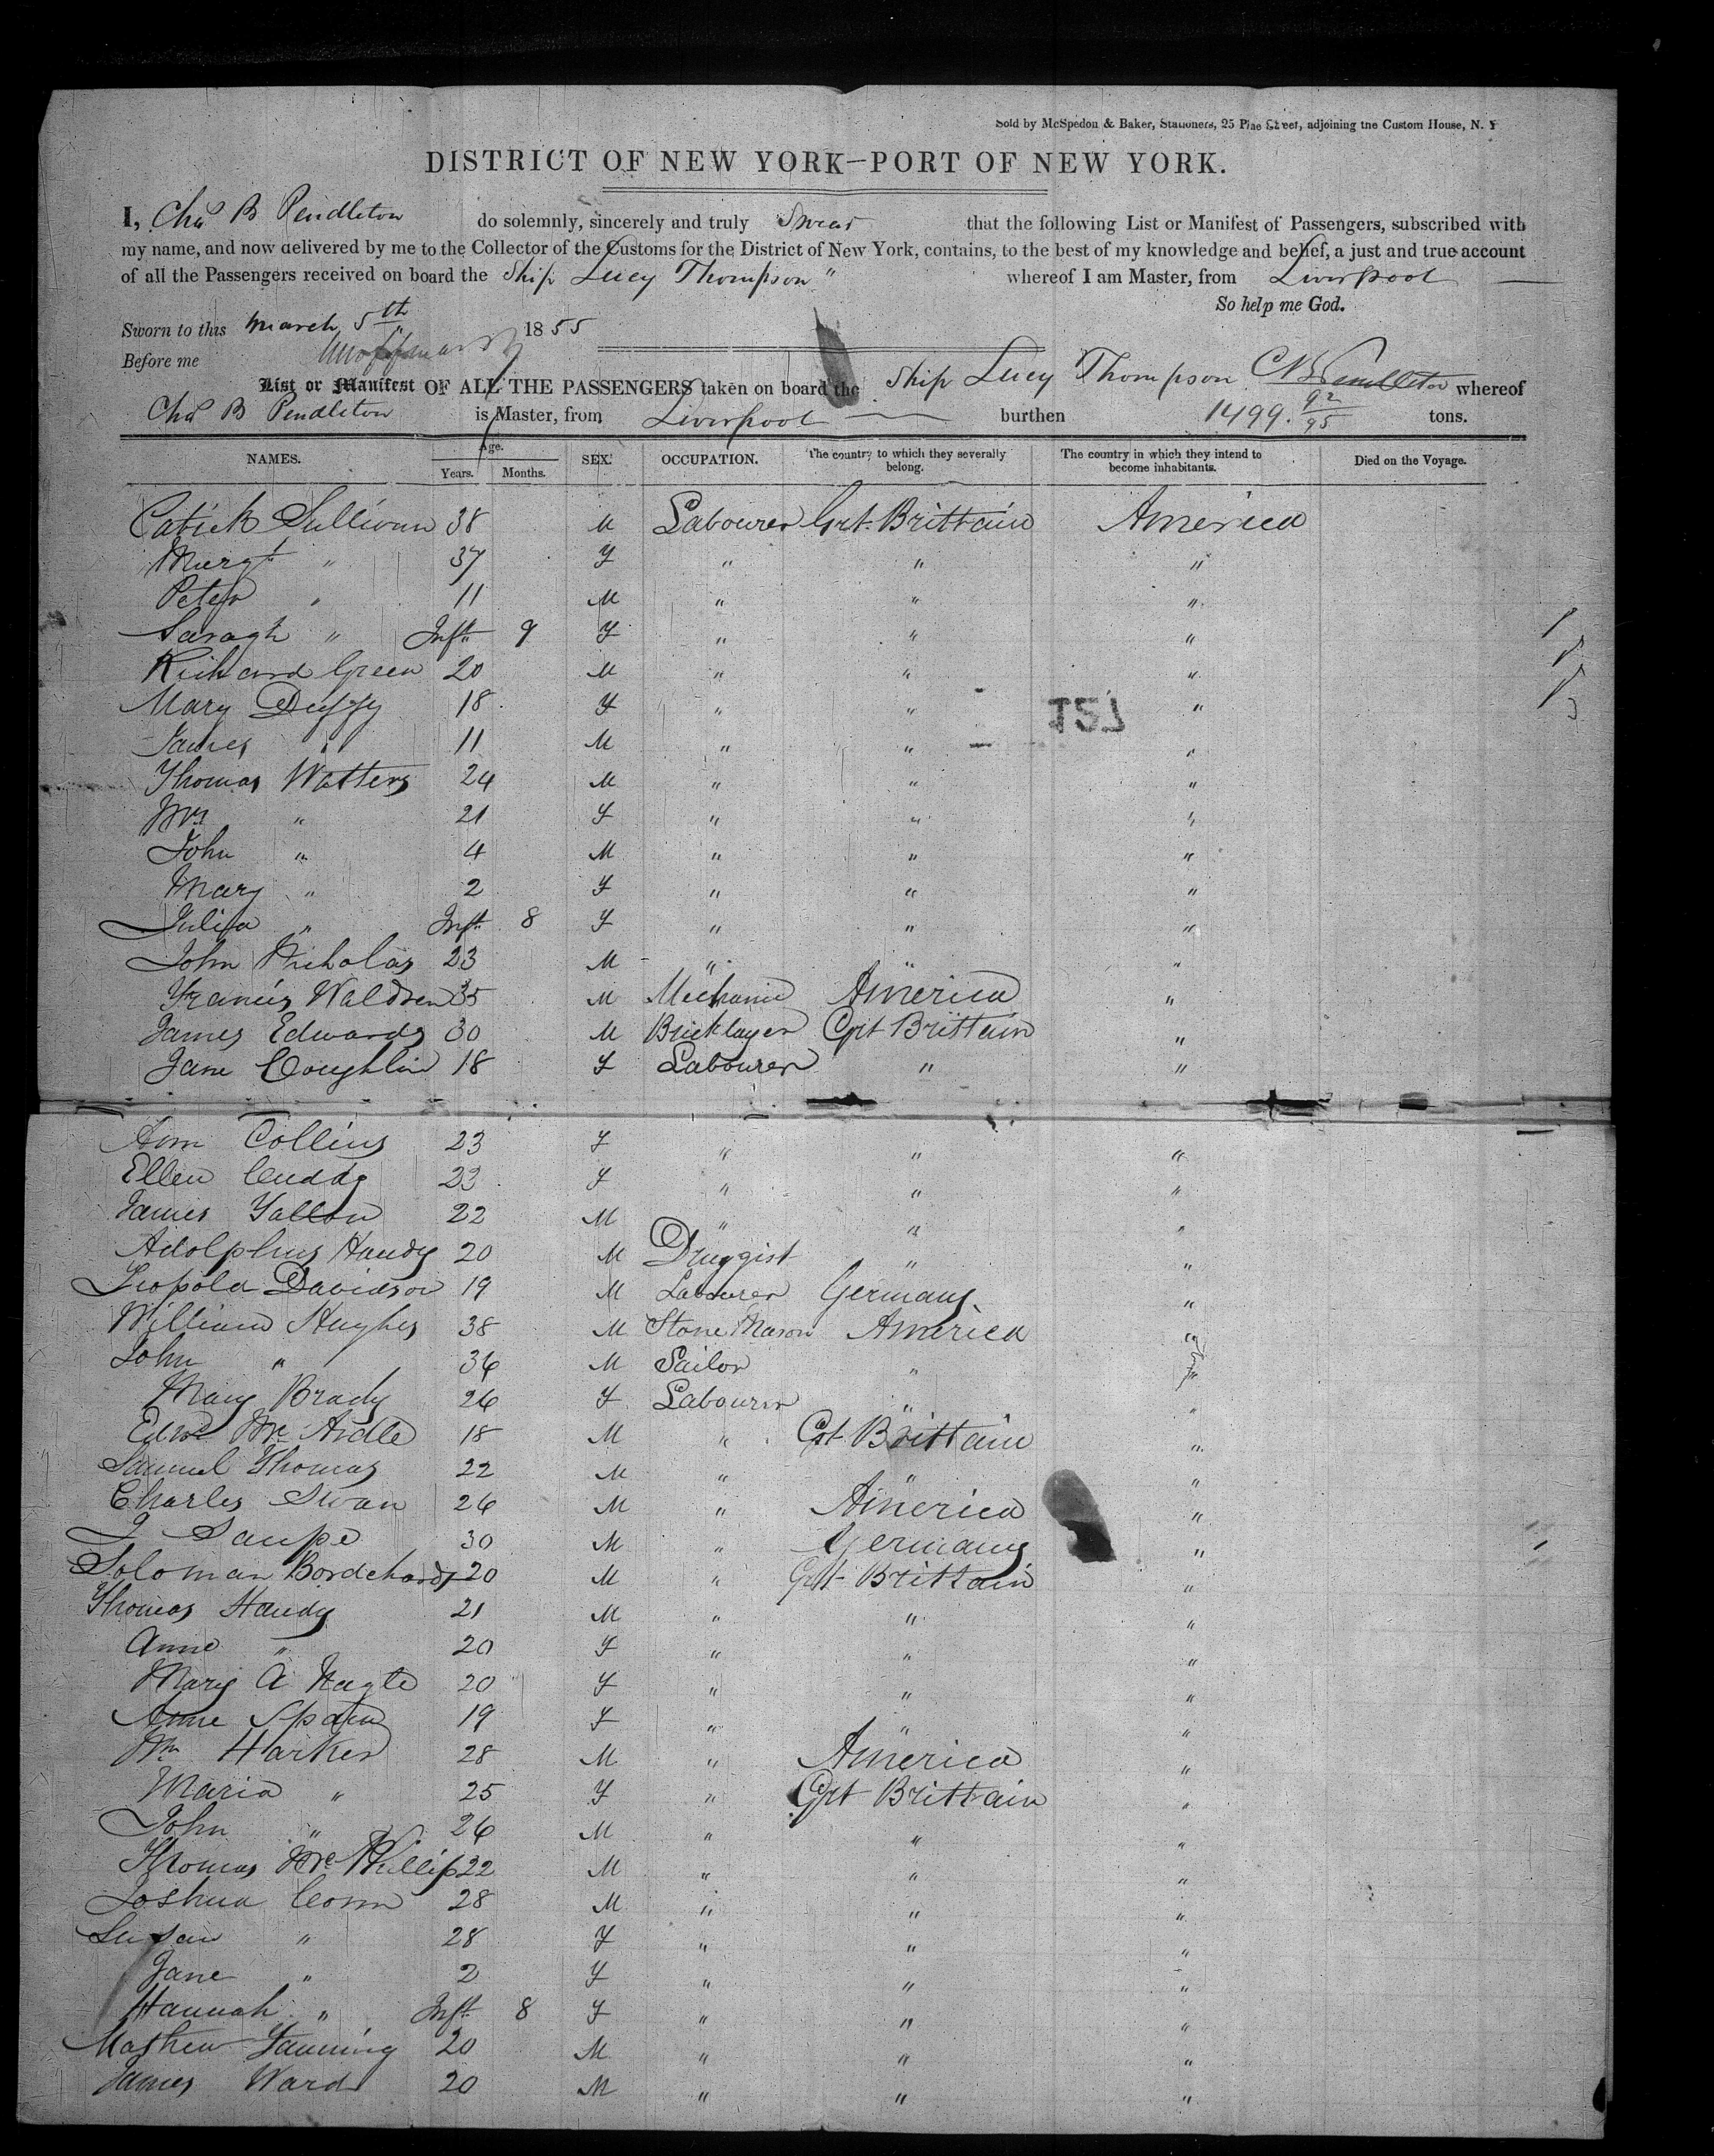 Sold by McSpedon & Baker, Stationers, 25 Pine Street, adjoining the Custom House, N. Y
DISTRICT OF NEW YORK—PORT OF NEW YORK.
I, Chas B Pendleton do solemnly, sincerely and truly Swear that the following List or Manifest of Passengers, subscribed with
my name, and now delivered by me to the Collector of the Customs for the District of New York, contains, to the best of my knowledge and belief, a just and true account
of all the Passengers received on board the Ship Lucy Thompson" whereof I am Master, from Liverpool
So help me God.
Sworn to this March 5th 1855
Before me
List or Manifest OF ALL THE PASSENGERS taken on board the Ship Lucy Thompson C B Pendleton whereof
Chas B Pendleton is Master, from Liverpool burthen 1499. 92/95 tons.
NAMES. Age. Years. Months. SEX. OCCUPATION. The country to which they severally belong. The country in which they intend to become inhabitants. Died on the Voyage.
Patrick Sullivan 38 M Labourer Grt Brittain America
Margt " 37 F " " "
Peter " 11 M " " "
Saragh " Inft 9 F " " "
Richard Green 20 M " " "
Mary Duffy 18 F " " "
James " 11 M " " "
157
Thomas Watters 24 M " " "
Mrs " 21 F " " "
John " 4 M " " "
Mary " 2 F " " "
Julia " Inft 8 F " " "
John Nicholas 23 M " " "
Francis Waldren 35 M Mechanic America "
James Edwards 30 M Bricklayer Grt Brittain "
Jane Coughlin 18 F Labourer " "
Ann Collins 23 F " " "
Ellen Cuddy 23 F " " "
James Fallon 22 M " " "
Adolphus Handy 20 M Druggist " "
Leopold Davidson 19 M Labourer Germany "
William Hughes 38 M Stone Mason America "
John " 36 M Sailor " "
Mary Brady 26 F Labourer " "
Edwd McArdle 18 M " Grt Brittain "
Samuel Thomas 22 M " " "
Charles Swan 26 M " America "
J Saupe 30 M " Germany "
Soloman 20 M " Grt Brittain "
Thomas Handy 21 M " " "
Anne " 20 F " " "
Mary A 20 F " " "
Anne Spain 19 F " " "
Wm Harker 28 M " America "
Maria " 25 F " Grt Brittain "
John " 26 M " " "
Thomas McPhillip 22 M " " "
Joshua Conn 28 M " " "
Susan " 28 F " " "
Jane " 2 F " " "
Hannah " Inft 8 F " " "
Mathew Fanning 20 M " " "
James Ward 20 M " " "